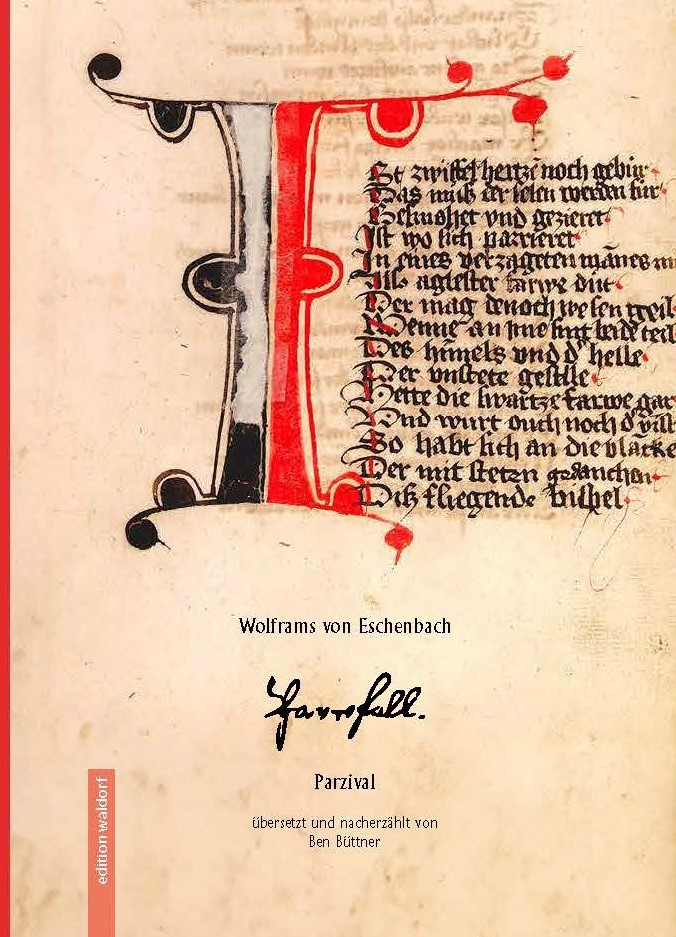 I
St zwiffel hertzē noch gebur
Das muß der selen werden sur
Gesmohet vnd gezieret
Ist wo sich parrieret
In eines verzageten mānes
Als aglester farwe dut
Der mag denoch wesen geil
Wenne an ime sint beide teil
Des himels vnd d' helle
Der vnstete geselle
Hette die swartze farwe gar
Vnd wurt ouch noch d'
So habt sich an die
Der mit steten gedancken
Diß fliegende bispel
Wolframs von Eschenbach
Parzefall.
Parzival
übersetzt und nacherzählt von
Ben Büttner
edition waldorf